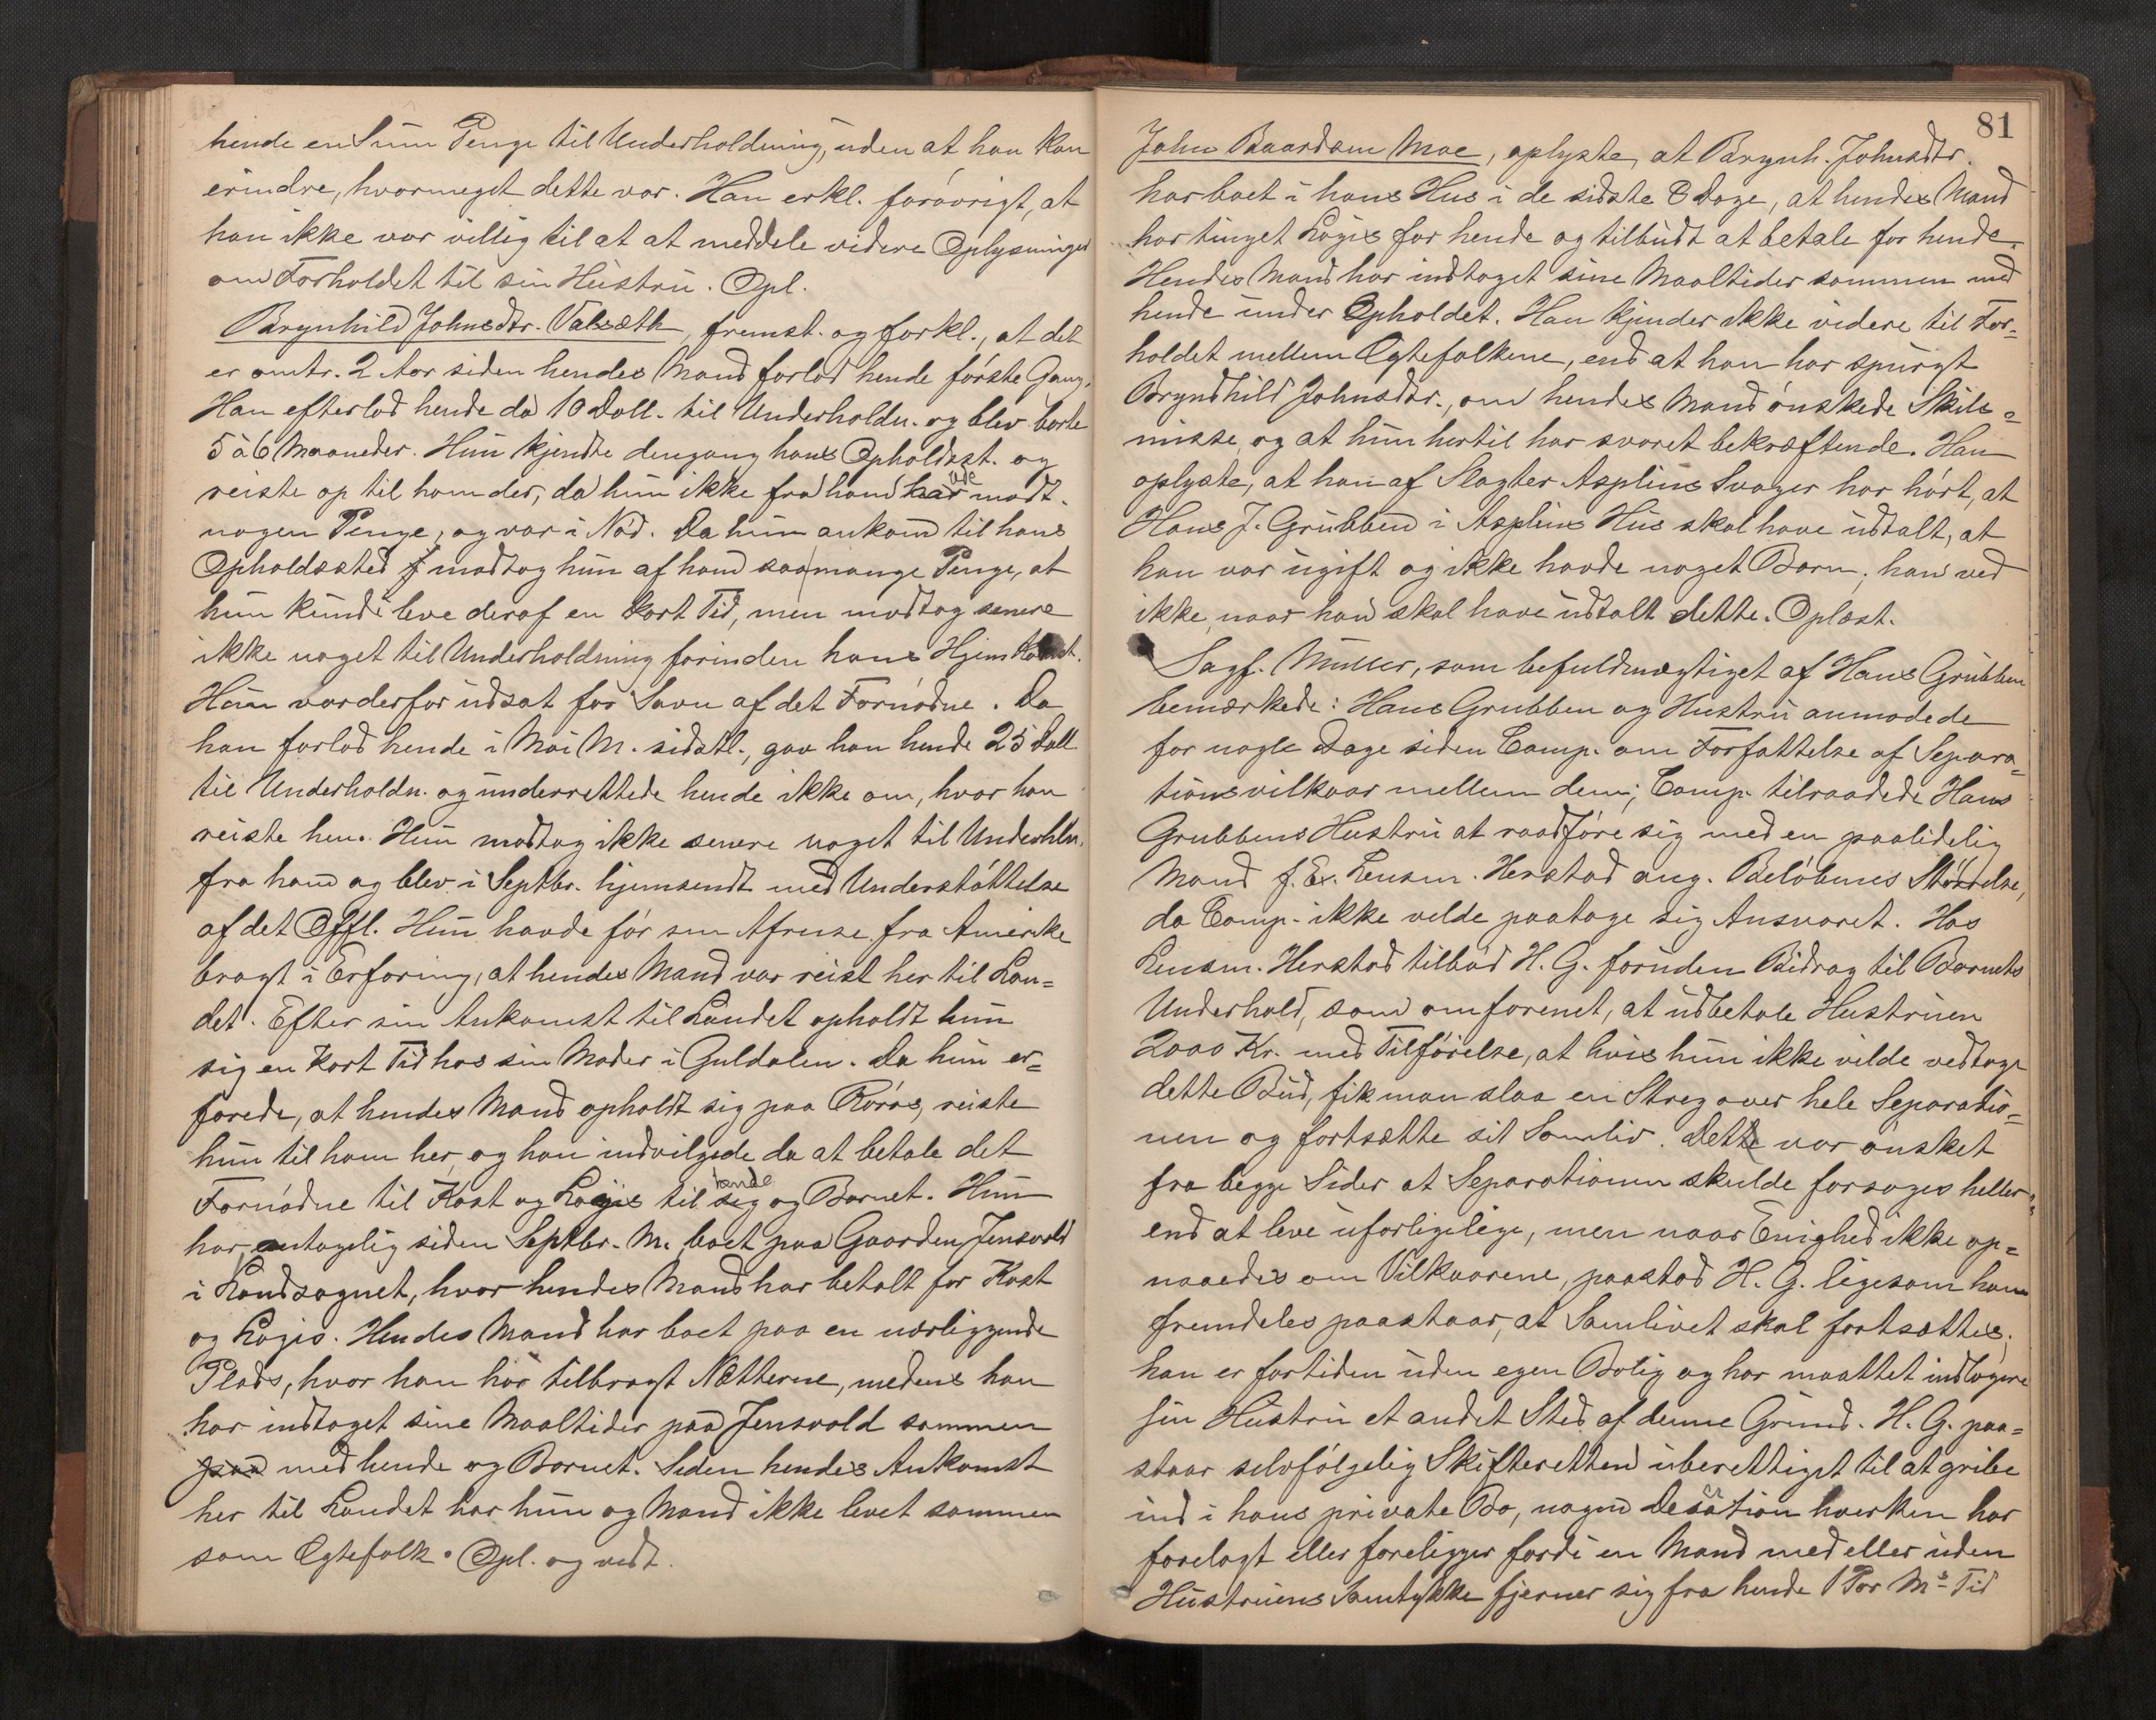 hende en Sum Penge til Underholdning, uden at han kan
erindre, hvormeget dette var. Han erkl. forøvrigt, at
han ikke var villig til at at meddele videre Oplysninger
om Forholdet til sin Hustru. Opl.
Brynhild Johnsdtr. Valsæth, fremst. og forkl., at det
er omtr. 2 Aar siden hendes Mand forlod hende første Gang.
Han efterlod hende da 10 Doll. til Underholdn. og blev borte
5 à 6 Maaneder. Hun kjendte dengang hans Opholdsst. og
reiste op til ham der, da hun ikke fra ham havde modt.
nogen Penge, og var i Nød. Da hun ankom til hans
Opholdssted modtog hun af ham saa mange Penge, at
hun kunde leve deraf en kort Tid, men modtog senere
ikke noget til Underholdning forinden hans Hjemkomst.
Hun var derfor udsat for Savn af det Fornødne. Da
han forlod hende i Mai M. sidstl., gav han hende 25 Doll
til Underholdn. og underrettede hende ikke om, hvor han
reiste hen. Hun modtog ikke senere noget til Underhln.
fra ham og blev i Septbr. hjemsendt med Understøttelse
af det Offl. Hun havde før sin Afreise fra Amerike
bragt i Erfaring, at hendes Mand var reist her til Lan=
det. Efter sin Ankomst til Landet opholdt hun
sig en kort Tid hos sin Moder i Guldalen. Da hun er=
farede, at hendes Mand opholdt sig paa Røros, reiste
hun til ham her, og han indvilgede da at betale det
Fornødne til Kost og Logis til hende og Barnet. Hun
har antagelig siden Septbr. M. boet paa Gaarden Jensvold
i Landsognet, hvor hendes Mand har betalt for Kost
og Logis. Hendes Mand har boet paa en nærliggende
Plads, hvor han har tilbragt Nætterne, medens han
har indtaget sine Maaltider paa Jensvold sammen
paa med hende og Barnet. Siden hendes Ankomst
her til Landet har hun og Mand ikke levet sammen
som Egtefolk. Opl. og vedt.
81
John Baardsen Moe, oplyste, at Brynh. Johnsdtr.
har boet i hans Hus i de sidste 8 Dage, at hendes Mand
har tinget Logis for hende og tilbudt at betale for hende.
Hendes Mand har indtaget sine Maaltider sammen med
hende under Opholdet. Han kjender ikke videre til For=
holdet mellem Egtefolkene, end at han har spurgt
Bryndhild Johnsdtr., om hendes Mand ønskede Skils=
misse, og at hun hertil har svaret bekræftende. Han
oplyste, at han af Slagter Asplins Svoger har hørt, at
Hans J. Grubben i Asplins Hus skal have udtalt, at
han var ugift og ikke havde noget Barn; han ved
ikke, naar han skal have udtalt dette. Oplæst.
Sagf. Müller, som befuldmægtiget af Hans Grubben
bemærkede: Hans Grubben og Hustru anmodede
for nogle Dage siden Comp. om Forfattelse af Separa=
tionsvilkaar mellem dem; Comp. tilraadede Hans
Grubbens Hustru at raadføre sig med en paalidelig
Mand f. Ex. Lensm. Herstad ang. Beløbenes Størrelse,
da Comp. ikke vilde paatage sig Ansvaret. Hos
Lensm. Herstad tilbød H. G. foruden Bidrag til Barnets
Underhold, som omforenet, at udbetale Hustruen
2000 Kr. med Tilføielse, at hvis hun ikke vilde vedtage
dette Bud, fik man slaa en Streg over hele Separatio=
nen og fortsætte sit Samliv. Dette var ønsket
fra begge Sider at Separationen skulde forsøges heller
end at leve uforligelige, men naar Enighed ikke op=
naaedes om Vilkaarene, paastod H. G. ligesom han
fremdeles paastaar, at Samlivet skal fortsættes;
han er fortiden uden egen Bolig og har maattet indlogere
sin Hustru et andet Sted af denne Grund. H. G. paa=
staar selvfølgelig Skifteretten uberettiget til at gribe
ind i hans private Bo, nogen Desertion hverken har
forelagt eller foreligger fordi en Mand med eller uden
Hustruens Samtykke fjerner sig fra hende 1 Par Ms. Tid